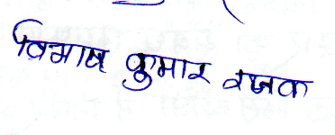 विभाष कुमार रजक